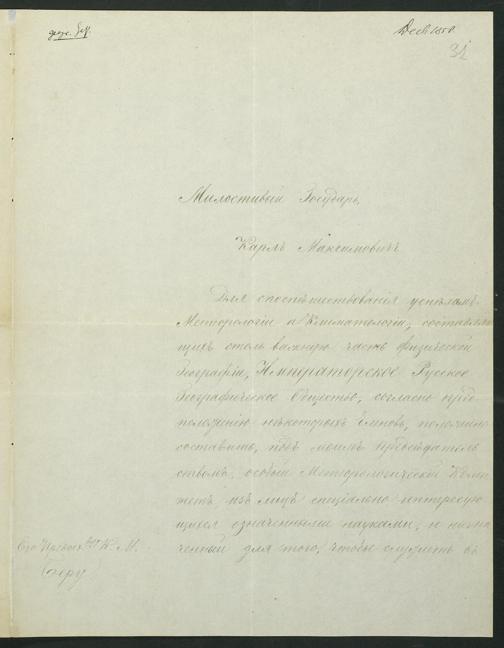 Dec 1850
31
Милостивый Государь,
Карлъ Максимовичъ
Для споспѣшествованія успѣхамъ
Метеорологіи и Климатологіи, составляю
щихъ столь важную часть физической
Географіи, Императорское Русское
Географическое Общество, согласно пред
положенію нѣкоторыхъ Членовъ, положило
составить, подъ моимъ предсѣдатель
ствомъ, особый Метеорологическій Коми
тетъ изъ лицъ спеціально интересую
щихся означенными науками, и назна
ченный для того, чтобы служить въ
К. М.
Беру